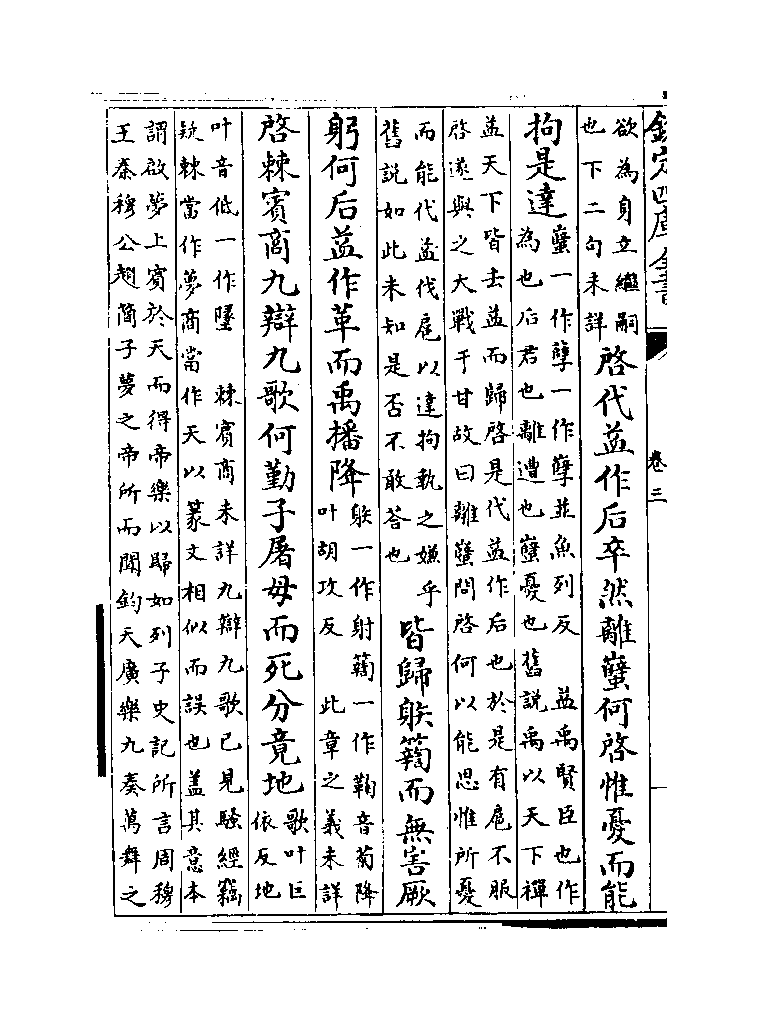 欽定四庫全書
卷三
欲為身立繼嗣
也下二句未詳
啓代益作后卒然離蠥何啓惟憂而能
拘是達
蠥一作孽一作孼並魚列反 益禹賢臣也作
為也后君也離遭也蠥憂也舊說禹以天下禪
益天下皆去益而歸啓是代益作后也於是有扈不服
啓遂與之大戰于甘故曰離蠥問啓何以能思惟所憂
而能代益伐扈以達拘執之嫌乎
舊說如此未知是否不敢答也
皆歸䠶䉛而無害厥
躬何后益作革而禹播降
䠶一作射䉛一作鞠音菊降
叶胡攻反 此章之義未詳
啓棘賓商九辯九歌何勤子屠母而死分竟地
歌叶巨
依反地
叶音低一作墬 棘賓商未詳九辯九歌已見騷經竊
疑棘當作夢商當作天以篆文相似而誤也蓋其意本
謂啟夢上賓於天而得帝樂以歸如列子史記所言周穆
王秦穆公趙簡子夢之帝所而聞鈞天廣樂九奏萬舞之